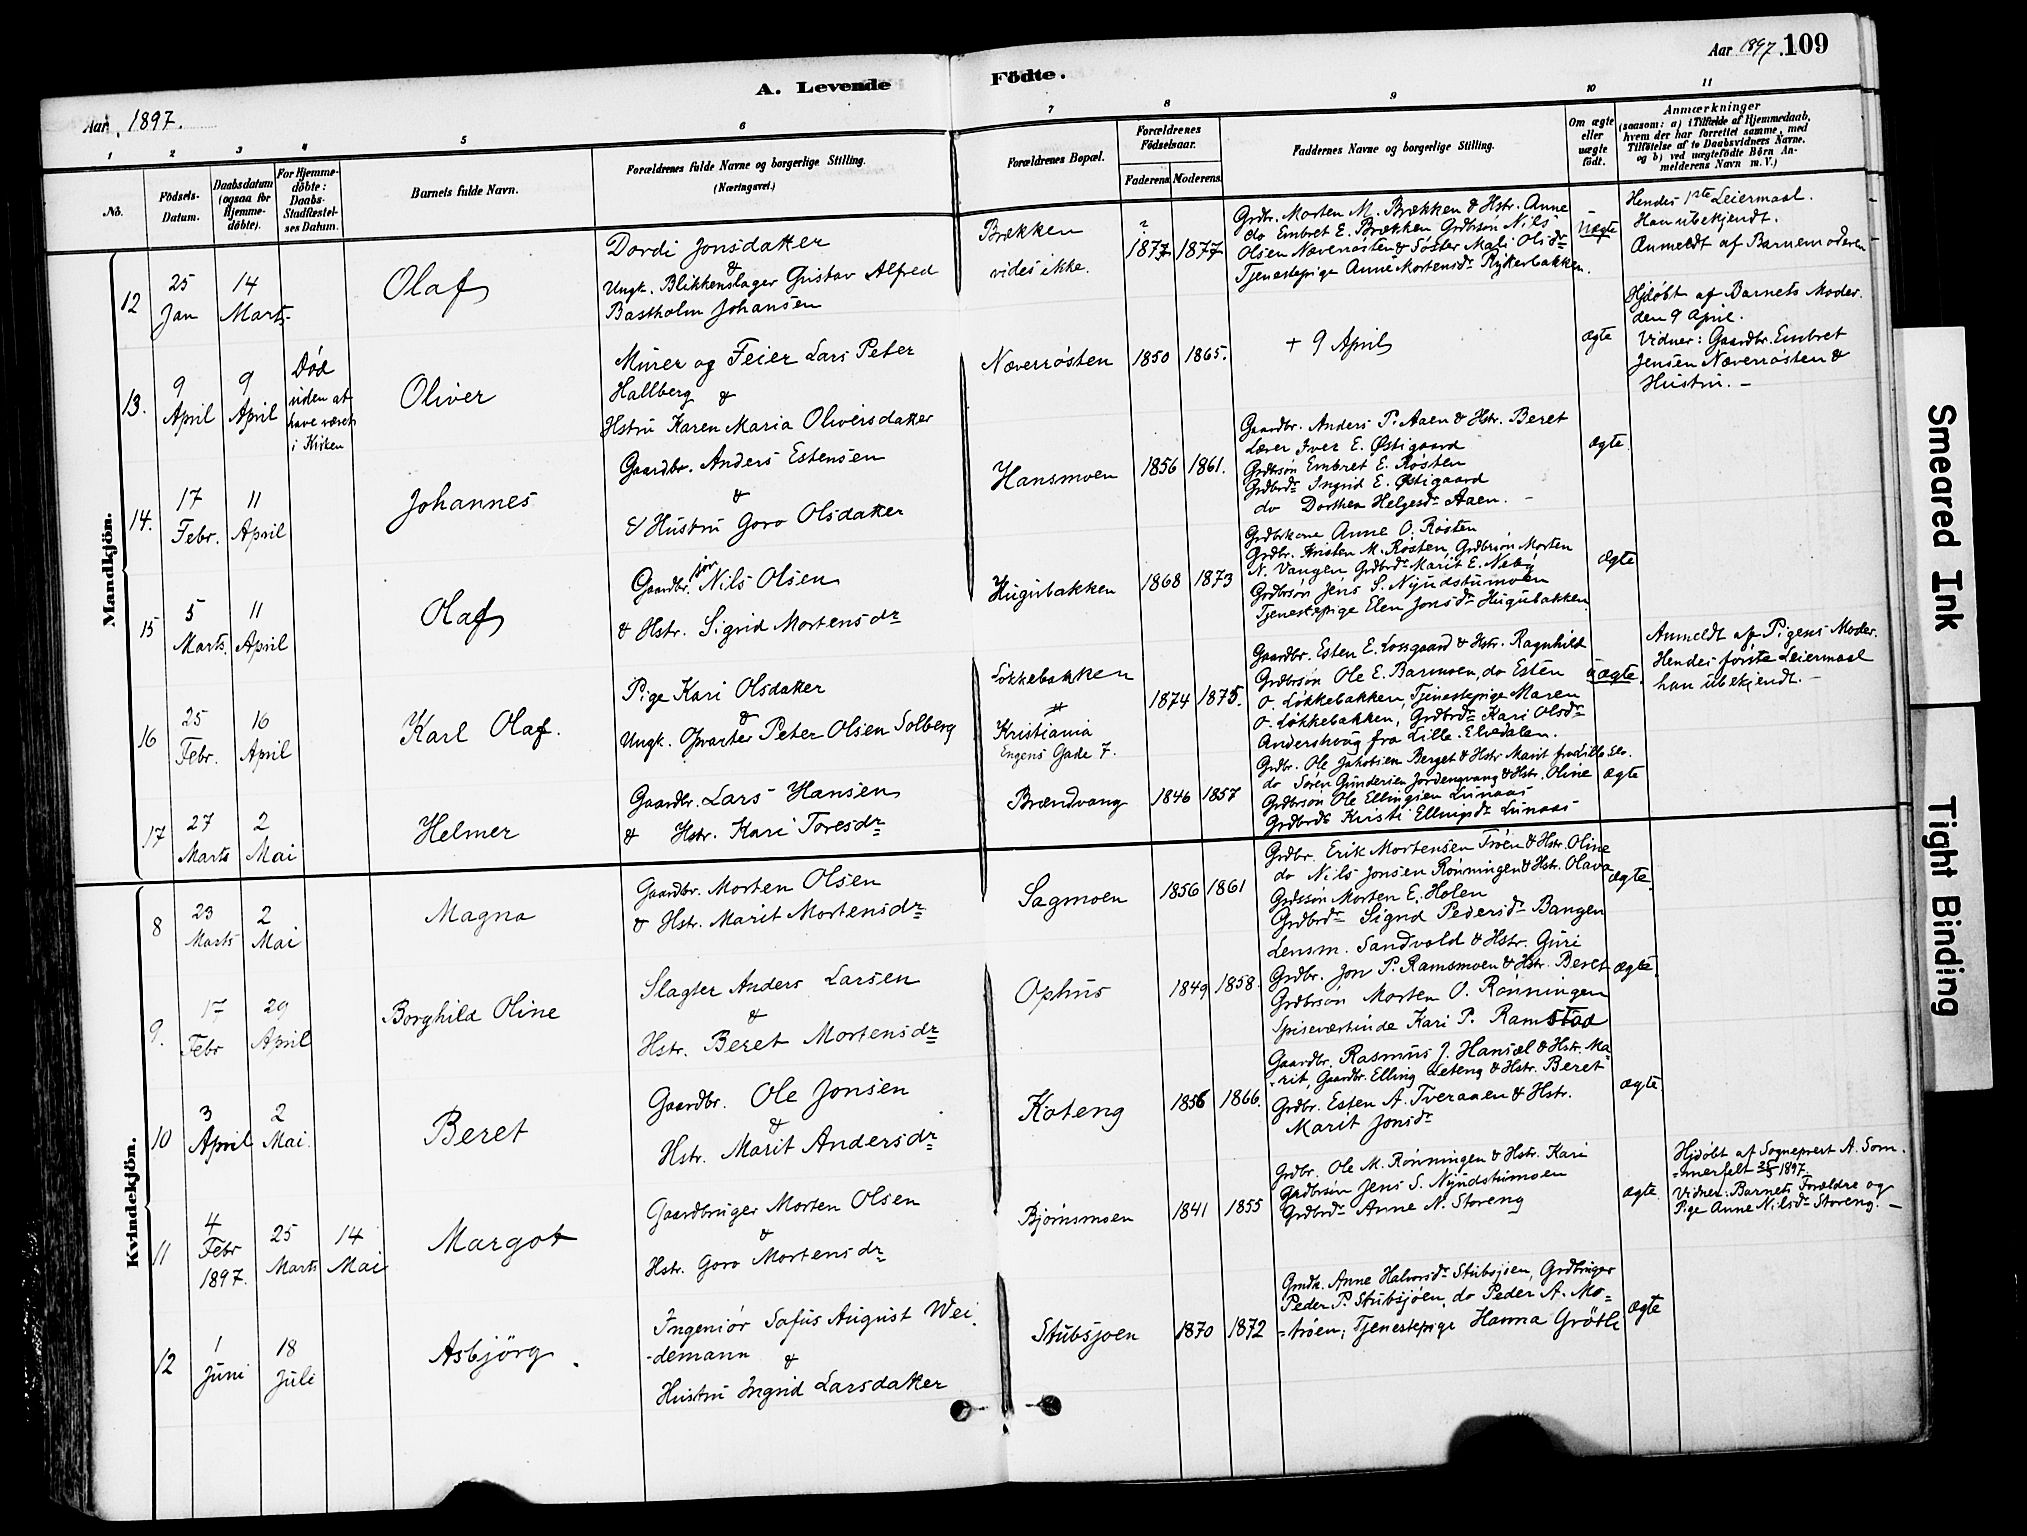 Aar 1897. 109
A. Levende Födte.
Aar 1897.
1 2 3 4 5 6 7 8 9 10 11
No. Födsels-Datum. Daabsdatum (ogsaa for Hjemme-döbte). For Hjemme-döbte: Daabs-Stadfæstel-ses Datum. Barnets fulde Navn. Forældrenes fulde Navne og borgerlige Stilling. (Næringsvei.) Forældrenes Bopæl. Forældrenes Födselsaar. Faderens. Moderens. Faddernes Navne og borgerlige Stilling. Om ægte eller uægte födt.
Anmærkninger
(saasom: a) i Tilfælde af Hjemmedaab,
hvem der har forrettet samme, med
Tilföielse af to Daabsvidners Navne.
og b) ved uægtefödte Börn An-
melderens Navn m. V.)
Mandkjön.
12 25 Jan 14 Marts Olaf
Dordi Jonsdatter
&
Ungk. Blikkenslager Gustav Alfred
Bastholm Johansen
Brækken
vides ikke.
? 1877 1877
Grdbr. Morten M. Brækken & Hstr. Anne
do Embret E. Brækken Grdbrsön Nils
Olsen Næverrösten & Söster Mali Olsdr
Tjenestepige Anne Mortensdr Rykerbakken.
üægte
Hendes 1ste Leiermaal.
Han ubekjendt.
Anmeldt af Barnemoderen
13. 9 April 9 April
Död
uden at
have været
i Kirken
Oliver
Mürer og Feier Lars Peter
Hallberg &
Hstru Karen Maria Oliversdatter
Næverrösten 1850 1865.
+ 9 April
ægte
Hjdöbt af Barnets Moder
den 9 April.
Vidner: Gaardbr. Embret
Jensen Næverrösten &
Hustru. -
14. 17 Febr. 11 April Johannes
Gaardbr. Anders Estensen
&
Hüstru Goro Olsdatter
Hansmoen 1856 1861.
Gaardbr. Anders P. Aaen & Hstr. Beret
Lærer Iver E. Östigaard
Grdbrsön Embret E. Rösten
Grdbrdr Ingrid E. Östigaard
do Dorthea Helgesdr Aaen. -
ægte.
15 5 Marts. 11 April Olaf
Gaardbr. jor Nils Olsen
& Hstr. Sigrid Mortensdr
Hugubakken 1868 1873
Grdbrkone Anne O. Rösten
Grdbr. Kristen M. Rösten, Grdbrsön Morten
N. Vangen Grdbrdr Marit E. Neby
Grdbrsön Jens S. Nyüdstumoen
Tjenestepige Elen Jonsdr Hugubakken
ægte
16 25 Febr. 16 April Karl Olaf.
Pige Kari Olsdatter
&
Ungk. Opvarter Peter Olsen Solberg
Lökkebakken
Kristiania
Engens Gade 7.
1874 1875.
Gaardbr. Esten E. Losgaard & Hstr. Ragnhild
Grdbrsön Ole E. Barmoen, do Esten
O. Lökkebakken, Tjenestepige Maren
O. Lökkebakken, Grdbrdr Kari Olsdr
Andersvaag fra Lille-Elvedalen.
uægte.
Anmeldt af Pigens Moder.
Hendes förste Leiermaal
han übekjendt. -
17 27 Marts 2 Mai Helmer
Gaardbr. Lars Hansen
& Hstr. Kari Toresdr
Brændvang 1846 1857
Grdbr. Ole Jakobsen Berget & Hstr Marit fra Lille Elv.
do Sören Gundersen Jordengvang & Hstr. Oline
Grdbrsön Ole Ellingsen Lunaas
Grdbrdr Kristi Ellingsdr Lunaas
ægte
Kvindekjön.
8 23 Marts 2 Mai Magna
Gaardbr. Morten Olsen
& Hstr. Marit Mortensdr
Sagmoen 1856 1861
Grdbr. Erik Mortensen Tröen & Hstr. Oline
do Nils Jonsen Rönningen & Hstr. Olava
Grdbrsön Morten E. Holen
Grdbrdr Sigrid Pedersdr Bangen
ægte.
9. 17 Febr 29 April Borghild Oline
Slagter Anders Larsen
&
Hstr. Beret Mortensdr
Ophus 1849 1858.
Lensm. Sandvold & Hstr. Guri
Grdbr. Jon P. Ramsmoen & Hstr. Beret
Grdbrsön Morten O. Rönningen
Spiseværtinde Kari P. Ramstad
ægte.
10 3 April 2 Mai. Beret
Gaardbr. Ole Jonsen
&
Hstr. Marit Andersdr
Koteng 1856 1866.
Gaardbr. Rasmus J. Hansæl & Hstr. Ma-
-rit, Gaardbr. Elling Leteng & Hstr. Beret
Grdbr. Esten A. Tveraaen & Hstr.
Marit Jonsdr
ægte
11 4 Febr 1897. 25 Marts 14 Mai Margot
Gaardbruger Morten Olsen
&
Hstr. Goro Mortensdr
Bjørnsmoen 1841 1855
Grdbr. Ole M. Rönningen & Hstr. Kari
Grdbrsön Jens S. Nyüdstumoen
Grdbrdr Anne N. Storeng
ægte.
Hjdöbt af Sogneprest A. Som-
-merfelt 25/3 1897.
Vidner: Barnets Forældre og
Pige Anne Nilsdr Storeng. -
12 1 Juni 18 Juli Asbjörg.
Ingeniör Sofus August Wei-
-demann
&
Hustru Ingrid Larsdatter
Stubsjoen 1870 1872
Gmdk. Anne Halvorsdr Stubsjoen, Grdbruger
Peder P. Stubsjöen, do Peder A. Mo=
=tröen; Tjenestepige Hanna Grötli
ægte
Smeared Ink
Tight Binding